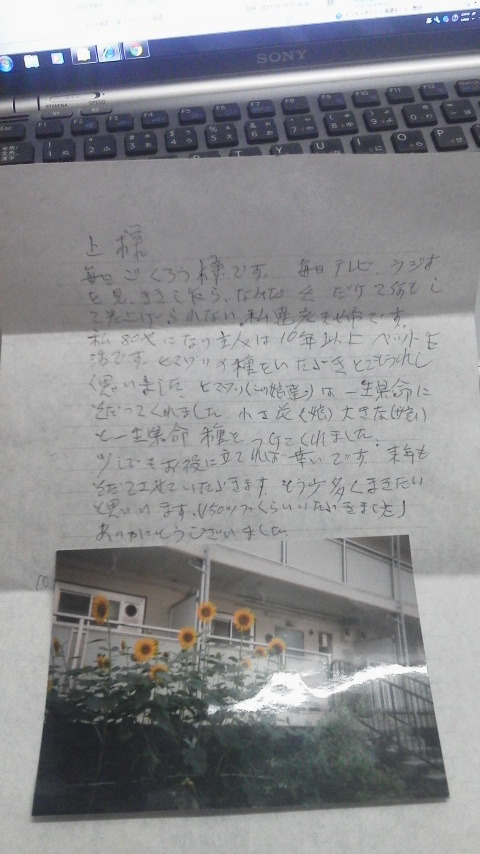 SONY
STAMINA
SPEED
F1 F2 F3 F4 F5 F6 F7 F8 F9 F10 F11 F12
上様
毎日ごくろう様です。毎日テレビ、ラジオ
を見、ききしたら、なみだ だけで何もし
て上げられない、私達老夫です。
私80代になり主人は10年以上ベット生
活です。ヒマワリの種をいただきとてもうれし
く思いました ヒマワリ(この娘達)は一生県命に
そだってくれました 小さな花(娘)大きな(娘)
と一生県命種をつけてくれました。
少しでもお役に立てれば幸いです。来年も
そだてさせていただきます もう少多くまきたい
と思います。(150つぶくらいいただきました)
ありがとうございました